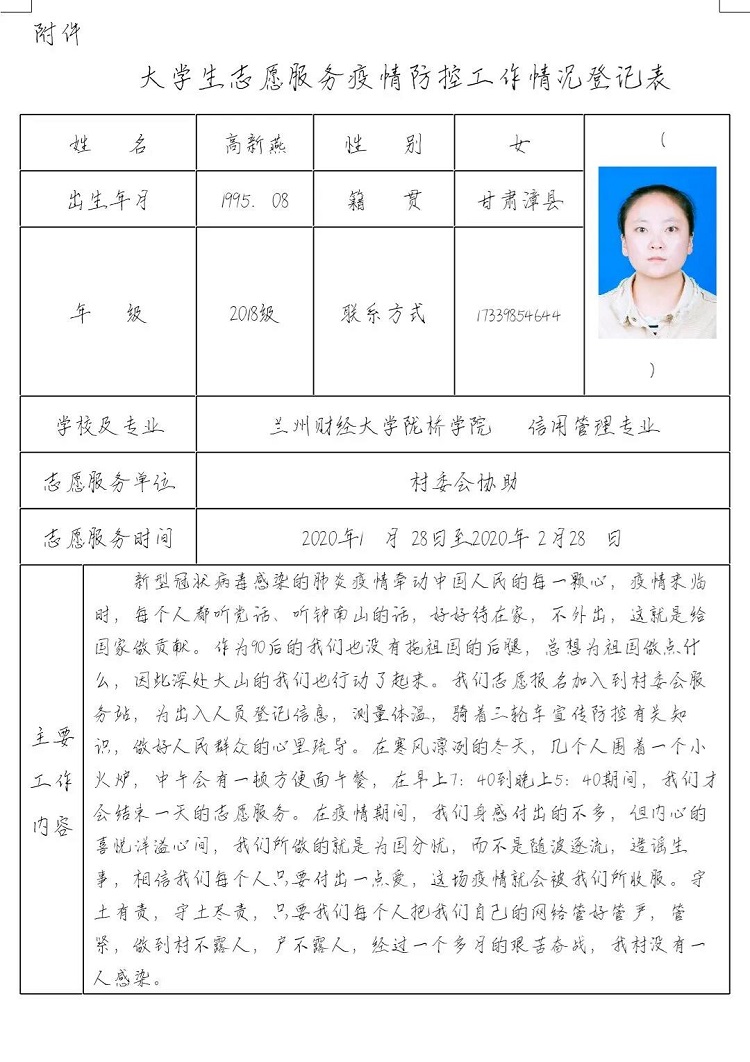 附件
大学生志愿服务疫情防控工作情况登记表
姓 名 高新燕 性 别 女 (
出生年月 1995. 08 籍 贯 甘肃漳县
年 级 2018级 联系方式 17339854644
)
学校及专业 兰州财经大学陇桥学院 信用管理专业
志愿服务单位 村委会协助
志愿服务时间 2020年1 月 28日至2020年 2月28 日
主要
工作
内容
新型冠状病毒感染的肺炎疫情牵动中国人民的每一颗心，疫情来临
时，每个人都听党话、听钟南山的话，好好待在家，不外出，这就是给
国家做贡献。作为90后的我们也没有拖祖国的后腿，总想为祖国做点什
么，因此深处大山的我们也行动了起来。我们志愿报名加入到村委会服
务站，为出入人员登记信息，测量体温，骑着三轮车宣传防控有关知
识，做好人民群众的心里疏导。在寒风凛冽的冬天，几个人围着一个小
火炉，中午会有一顿方便面午餐，在早上7：40到晚上5：40期间，我们才
会结束一天的志愿服务。在疫情期间，我们身感付出的不多，但内心的
喜悦洋溢心间，我们所做的就是为国分忧，而不是随波逐流，造谣生
事，相信我们每个人只要付出一点爱，这场疫情就会被我们所收服。守
土有责，守土尽责，只要我们每个人把我们自己的网络管好管严，管
紧，做到村不露人，户不露人，经过一个多月的艰苦奋战，我村没有一
人感染。